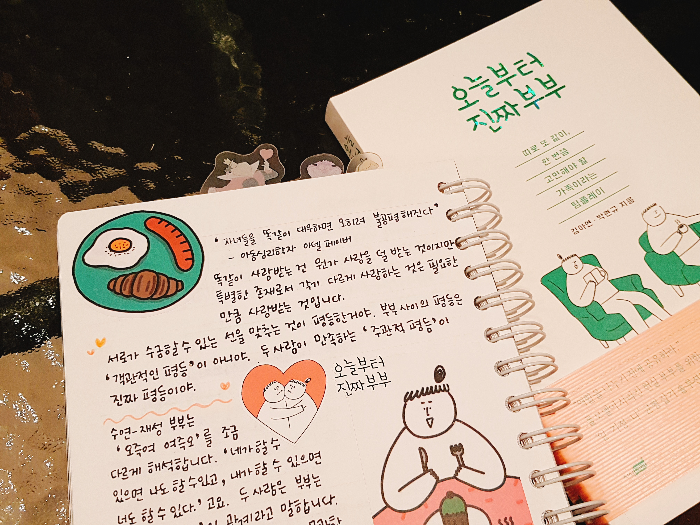 오늘부터
진짜부부
따로 또 같이,
한 번쯤
고민해야 할
가족이라는
팀플레이
김아연·박현규 지음
"자녀들을 똑같이 대우하면 오히려 불공평해진다"
- 아동심리학자 아델 페이버
똑같이 사랑받는 건 뭔가 사랑을 덜 받는 것이지만
특별한 존재로서 각기 다르게 사랑하는 것은 필요한
만큼 사랑받는 것입니다.
서로가 수긍할 수 있는 선을 맞추는 것이 평등한거야. 부부 사이의 평등은
'객관적인 평등'이 아니야. 두 사람이 만족하는 '주관적 평등'이
진짜 평등이야.
오늘부터
진짜부부
수연-재성 부부는
'오죽여 여죽오'를 조금
다르게 해석합니다. '네가 할 수
있으면 나도 할 수 있고, 내가 할 수 있으면
너도 할 수 있다.' 고요. 두 사람은 부부는
관계라고 말합니다.